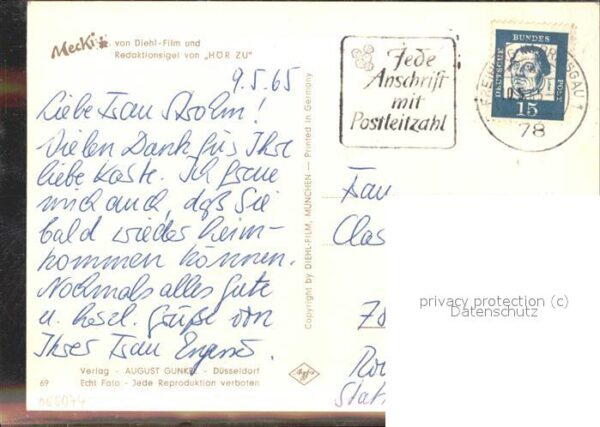 Mecki von Diehl-Film und
Redaktionsigel von „HÖR ZU"
9.5.65
Liebe Frau Strohm!
Vielen Dank für Ihre
liebe Karte. Ich freue
mich auch, daß Sie
bald wieder heim-
kommen können.
Nochmals alles Gute
u. herzl. Grüße von
Ihrer Frau
Verlag - AUGUST GUNKEL - Düsseldorf
69 Echt Foto - Jede Reproduktion verboten
Copyright by DIEHL-FILM, MÜNCHEN — Printed in Germany
Agfa
Jede
Anschrift
mit
Postleitzahl
DEUTSCHE BUNDES POST
15
78
Frau
Clas
Stat
privacy protection (c)
Datenschutz